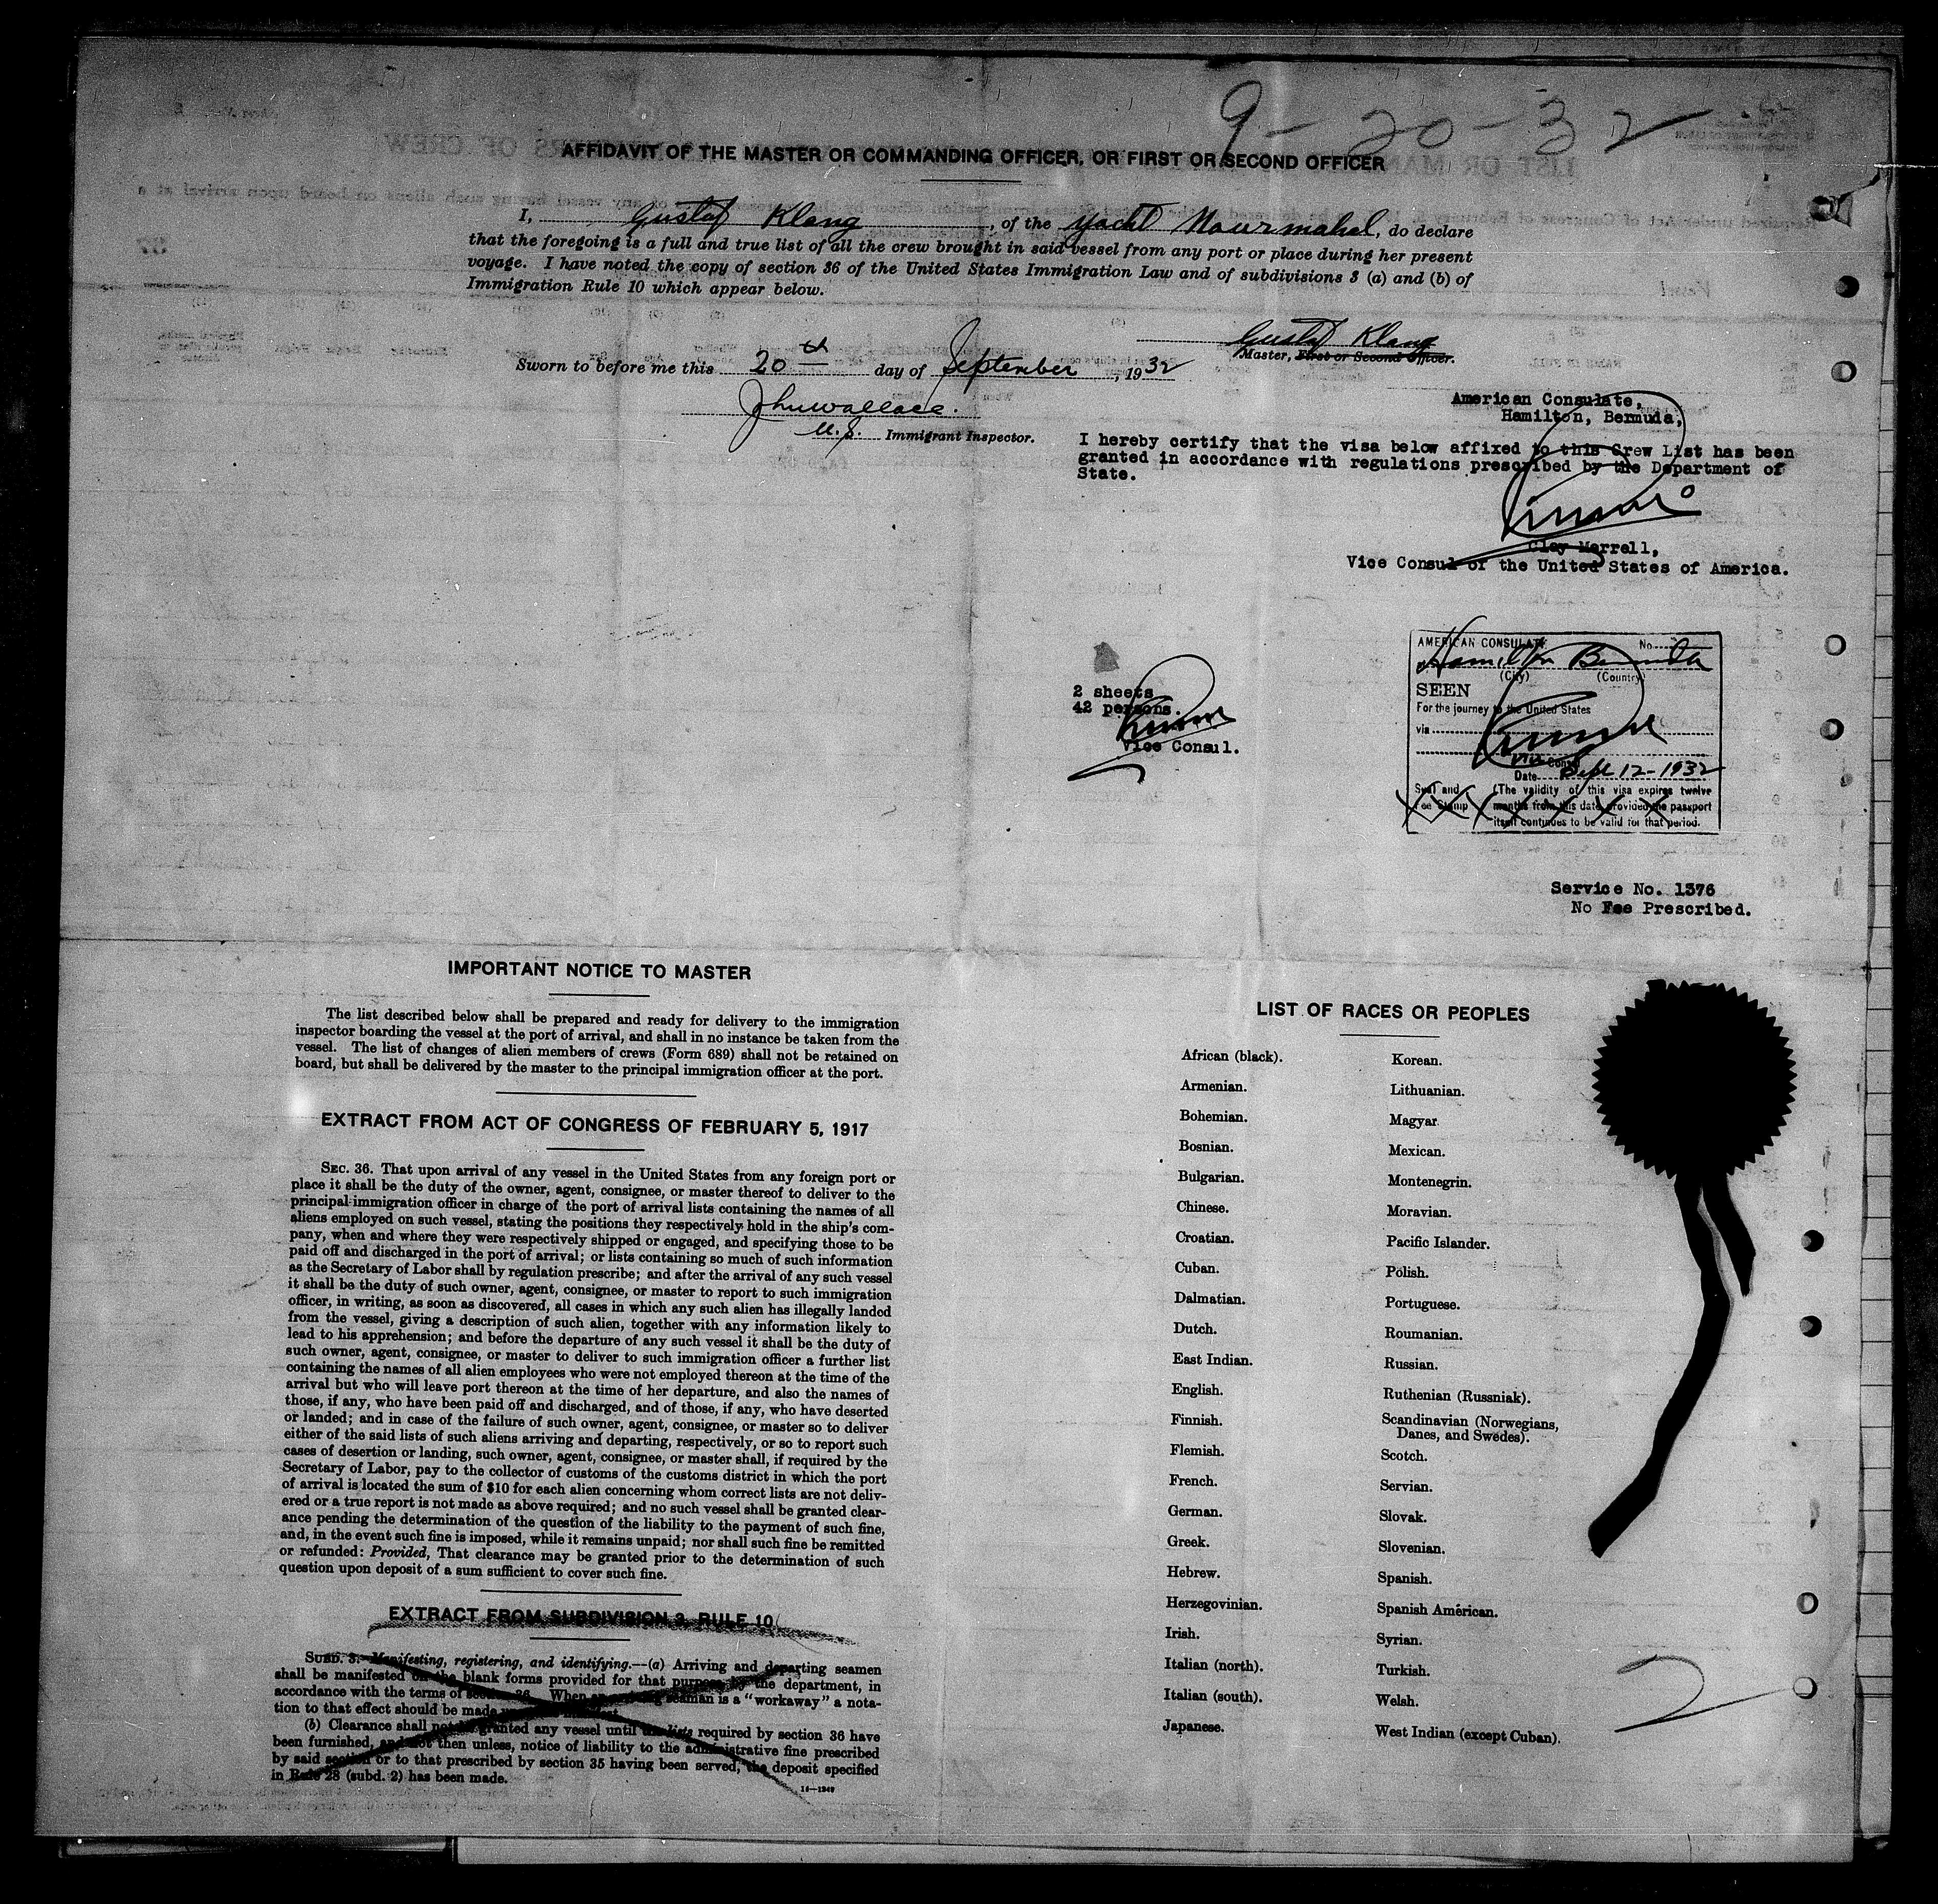 9-20-32
AFFIDAVIT OF THE MASTER OR COMMANDING OFFICER, OR FIRST OR SECOND OFFICER
I, Gustaf Klang, of the Yacht Nourmahal, do declare
that the foregoing is a full and true list of all the crew brought in said vessel from any port or place during her present
voyage. I have noted the copy of section 36 of the United States Immigration Law and of subdivisions 3 (a) and (b) of
Immigration Rule 10 which appear below.
Gustaf Klang
Master, First or Second Officer.
Sworn to before me this 20th day of September, 1932
Jhn Wallace.
U.S. Immigrant Inspector.
American Consulate,
Hamilton, Bermuda,
I hereby certify that the visa below affixed to this Crew List has been
granted in accordance with regulations prescribed by the Department of
State.
Clay Merrell,
Vice Consul of the United States of America.
2 sheets
42 persons.
Vice Consul.
AMERICAN CONSULATE No.
Hamilton Bermuda
(City) (Country)
SEEN
For the journey to the United States
via
Vice Consul
Date Sept 12-1932
Seal and
Fee Stamp
(The validity of this visa expires twelve
months from this date provided the passport
itself continues to be valid for that period.
Service No. 1376
No Fee Prescribed.
IMPORTANT NOTICE TO MASTER
The list described below shall be prepared and ready for delivery to the immigration
inspector boarding the vessel at the port of arrival, and shall in no instance be taken from the
vessel. The list of changes of alien members of crews (Form 689) shall not be retained on
board, but shall be delivered by the master to the principal immigration officer at the port.
EXTRACT FROM ACT OF CONGRESS OF FEBRUARY 5, 1917
SEC. 36. That upon arrival of any vessel in the United States from any foreign port or
place it shall be the duty of the owner, agent, consignee, or master thereof to deliver to the
principal immigration officer in charge of the port of arrival lists containing the names of all
aliens employed on such vessel, stating the positions they respectively hold in the ship's com-
pany, when and where they were respectively shipped or engaged, and specifying those to be
paid off and discharged in the port of arrival; or lists containing so much of such information
as the Secretary of Labor shall by regulation prescribe; and after the arrival of any such vessel
it shall be the duty of such owner, agent, consignee, or master to report to such immigration
officer, in writing, as soon as discovered, all cases in which any such alien has illegally landed
from the vessel, giving a description of such alien, together with any information likely to
lead to his apprehension; and before the departure of any such vessel it shall be the duty of
such owner, agent, consignee, or master to deliver to such immigration officer a further list
containing the names of all alien employees who were not employed thereon at the time of the
arrival but who will leave port thereon at the time of her departure, and also the names of
those, if any, who have been paid off and discharged, and of those, if any, who have deserted
or landed; and in case of the failure of such owner, agent, consignee, or master so to deliver
either of the said lists of such aliens arriving and departing, respectively, or so to report such
cases of desertion or landing, such owner, agent, consignee, or master shall, if required by the
Secretary of Labor, pay to the collector of customs of the customs district in which the port
of arrival is located the sum of $10 for each alien concerning whom correct lists are not deliv-
ered or a true report is not made as above required; and no such vessel shall be granted clear-
ance pending the determination of the question of the liability to the payment of such fine,
and, in the event such fine is imposed, while it remains unpaid; nor shall such fine be remitted
or refunded: Provided, That clearance may be granted prior to the determination of such
question upon deposit of a sum sufficient to cover such fine.
EXTRACT FROM SUBDIVISION 3, RULE 10
SUBD. 3. Manifesting, registering, and identifying.—(a) Arriving and departing seamen
shall be manifested on the blank forms provided for that purpose by the department, in
accordance with the terms of section 36. When an arriving seaman is a "workaway" a nota-
tion to that effect should be made
(b) Clearance shall not be granted any vessel until the lists required by section 36 have
been furnished, and not then unless, notice of liability to the administrative fine prescribed
by said section or to that prescribed by section 35 having been served, the deposit specified
in Rule 28 (subd. 2) has been made.
LIST OF RACES OR PEOPLES
African (black).
Armenian.
Bohemian.
Bosnian.
Bulgarian.
Chinese.
Croatian.
Cuban.
Dalmatian.
Dutch.
East Indian.
English.
Finnish.
Flemish.
French.
German.
Greek.
Hebrew.
Herzegovinian.
Irish.
Italian (north).
Italian (south).
Japanese.
Korean.
Lithuanian.
Magyar.
Mexican.
Montenegrin.
Moravian.
Pacific Islander.
Polish.
Portuguese.
Roumanian.
Russian.
Ruthenian (Russniak).
Scandinavian (Norwegians,
Danes, and Swedes).
Scotch.
Servian.
Slovak.
Slovenian.
Spanish.
Spanish American.
Syrian.
Turkish.
Welsh.
West Indian (except Cuban).
2